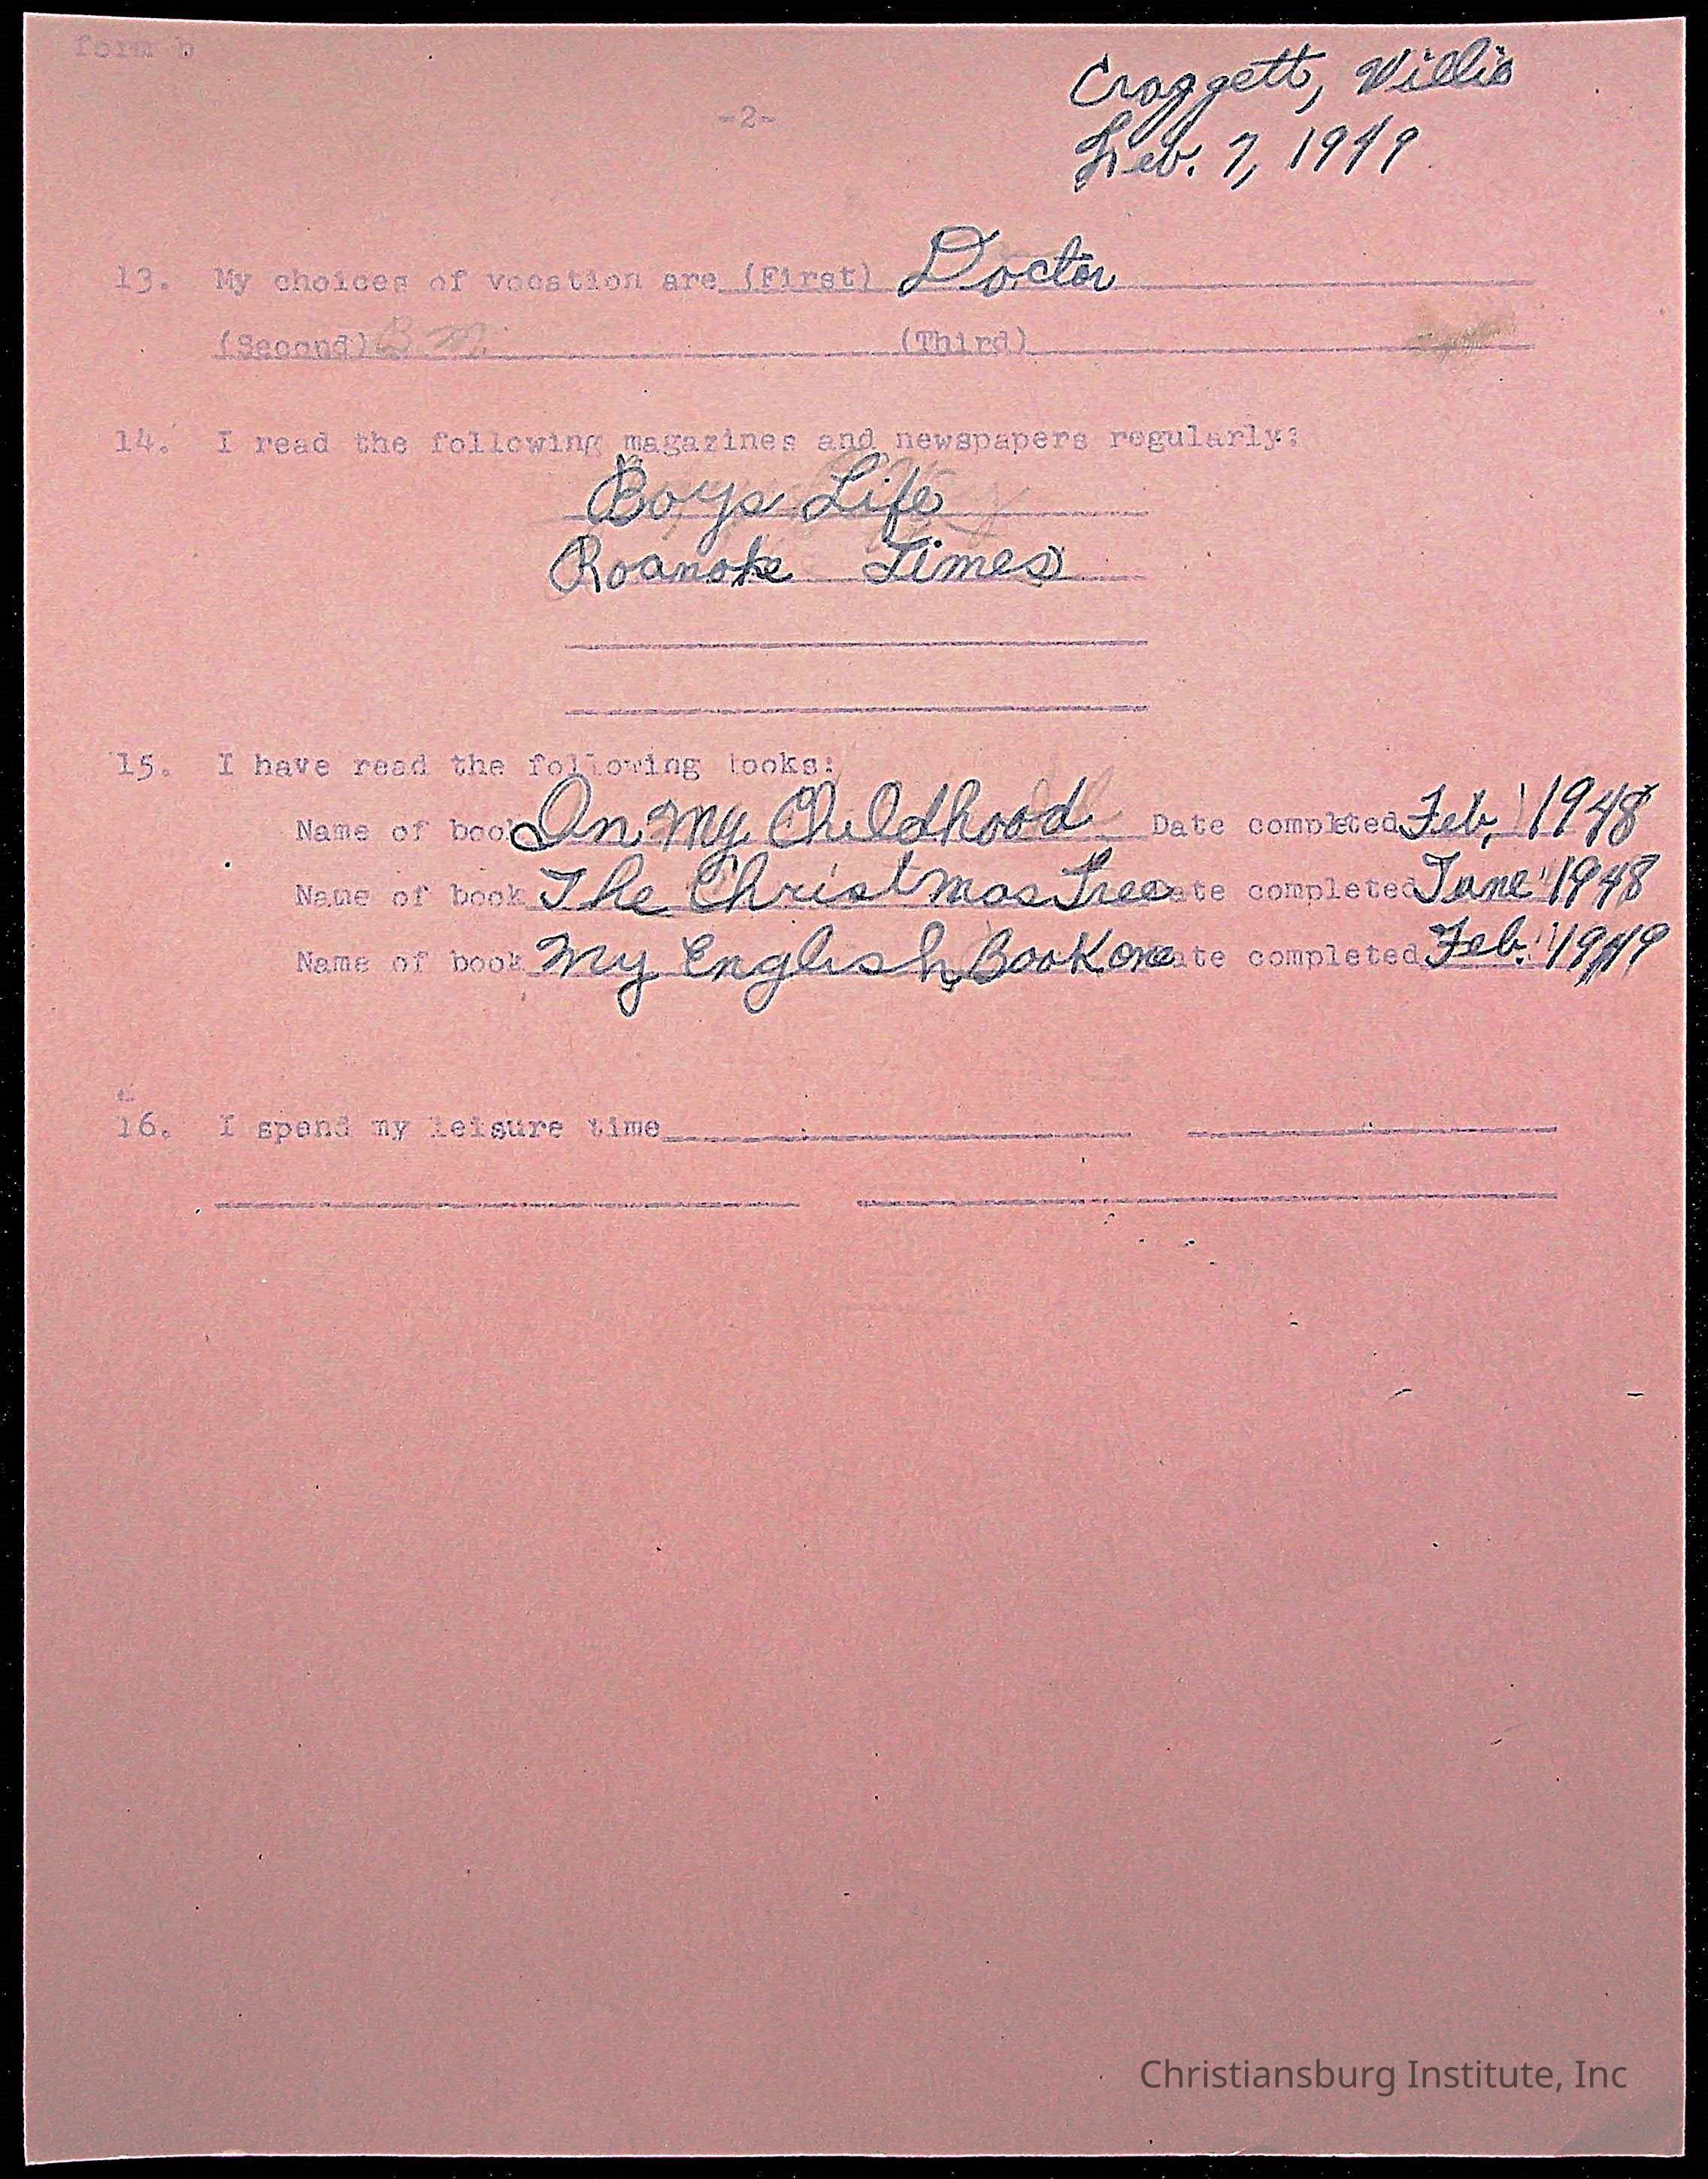 form b
Croggett, Willie
-2-
Feb. 7, 1949
13. My choices of vocation are (First) Doctor
(Second) (Third)
14. I read the following magazines and newspapers regularly:
Boys Life
Roanoke Times
15. I have read the following books:
Name of book In My Childhood Date completed Feb. 1948
Name of book The Christmas Tree Date completed June 1948
Name of book My English Book one Date completed Feb. 1949
16. I spend my leisure time
Christiansburg Institute, Inc